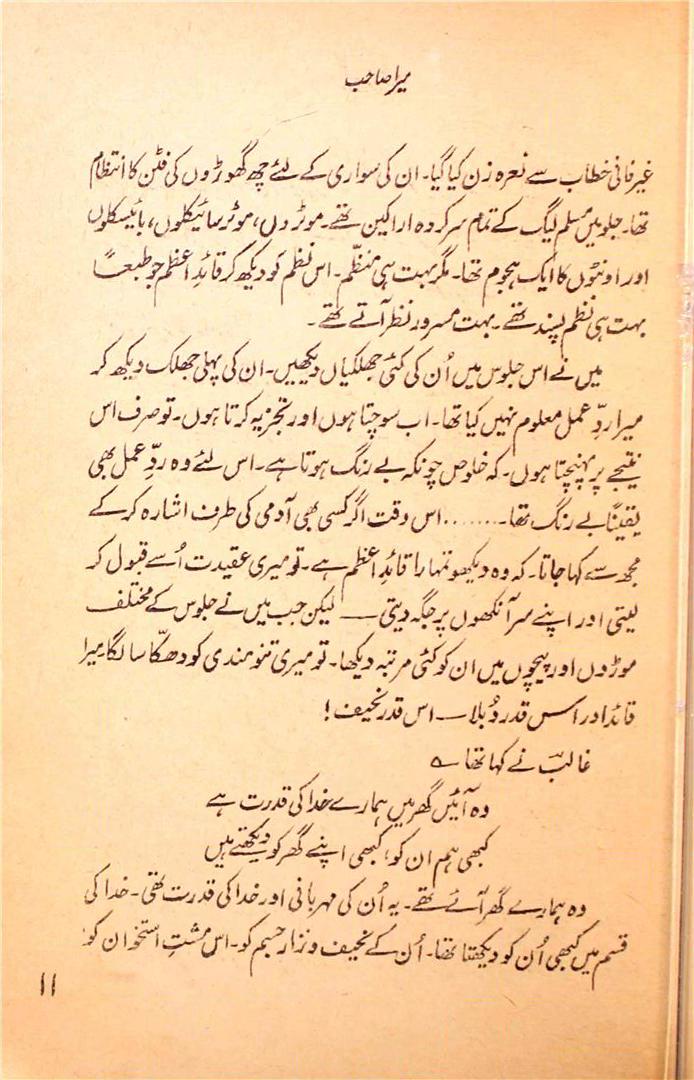 میرا صاحب
غیر فانی خطاب سے نعرہ زن کیا گیا۔ ان کی سواری کے لئے چھ گھوڑوں کی فٹن کا انتظام
تھا۔ جلو میں مسلم لیگ کے تمام سرکردہ اراکین تھے۔ موٹروں، موٹر سائیکلوں، بائیسکلوں
اور اونٹوں کا ایک ہجوم تھا۔ مگر بہت ہی منظّم۔ اس نظم کو دیکھ کر قائدِ اعظم جو طبعاً
بہت ہی نظم پسند تھے۔ بہت مسرور نظر آتے تھے۔
میں نے اس جلوس میں اُن کی کئی جھلکیاں دیکھیں۔ ان کی پہلی جھلک دیکھ کر
میرا ردِّ عمل معلوم نہیں کیا تھا۔ اب سوچتا ہوں اور تجزیہ کرتا ہوں۔ تو صرف اس
نتیجے پر پہنچتا ہوں۔ کہ خلوص چونکہ بے رنگ ہوتا ہے۔ اس لئے وہ ردِّ عمل بھی
یقیناً بے رنگ تھا۔....... اس وقت اگر کسی بھی آدمی کی طرف اشارہ کر کے
مجھ سے کہا جاتا۔ کہ وہ دیکھو تمہارا قائدِ اعظم ہے۔ تو میری عقیدت اُسے قبول کر
لیتی اور اپنے سر آنکھوں پر جگہ دیتی — لیکن جب میں نے جلوس کے مختلف
موڑوں اور پیچوں میں ان کو کئی مرتبہ دیکھا۔ تو میری تنومندی کو دھکّا سا لگا۔ میرا
قائد اور اس قدر دُبلا — اس قدر نحیف!
غالبؔ نے کہا تھا ؎
وہ آئیں گھر میں ہمارے خدا کی قدرت ہے
کبھی ہم ان کو، کبھی اپنے گھر کو دیکھتے ہیں
وہ ہمارے گھر آئے تھے۔ یہ اُن کی مہربانی اور خدا کی قدرت تھی۔ خدا کی
قسم میں کبھی اُن کو دیکھتا تھا۔ اُن کے نحیف و نزار جسم کو۔ اس مشتِ استخوان کو
۱۱